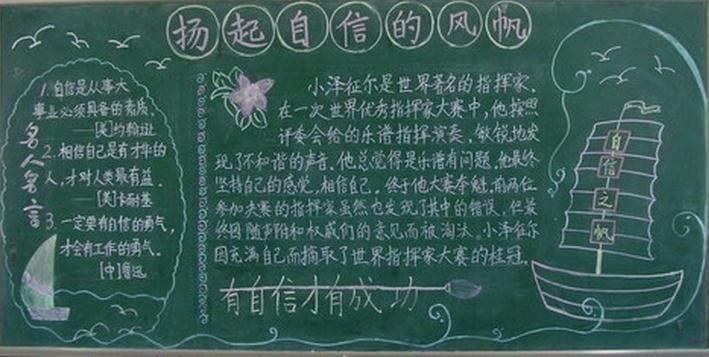 扬起自信的风帆
名人名言
1. 自信是从事大
事业必须具备的素质。
——[美]约翰逊
2. 相信自己是有才华的
人，才对人类最有益。
——[美]卡耐基
3. 一定要有自信的勇气，
才会有工作的勇气。
[中]鲁迅
小泽征尔是世界著名的指挥家。
在一次世界优秀指挥家大赛中，他按照
评委会给的乐谱指挥演奏，敏锐地发
现了不和谐的声音。他总觉得是乐谱有问题。他最终
坚持自己的感觉，相信自己。终于他大赛夺魁。前两位
参加决赛的指挥家虽然也发现了其中的错误，但最
终因随声附和权威们的意见而被淘汰。小泽征尔
因充满自己而摘取了世界指挥家大赛的桂冠。
有自信才有成功
自信之帆